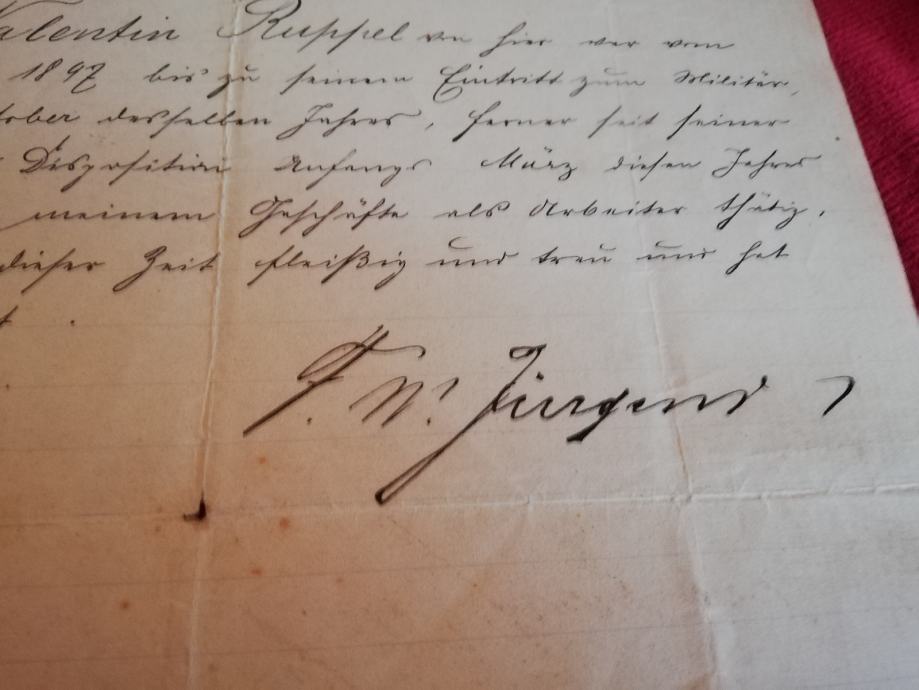 Valentin Ruppel von hier war vom
1897 bis zu seinem Eintritt zum Militär,
tober desselben Jahres, ferner seit seiner
Disposition Anfangs März diesen Jahres
meinem Geschäfte als Arbeiter thätig.
dieser Zeit fleißig und treu und hat
t.
F. W. Jürgens